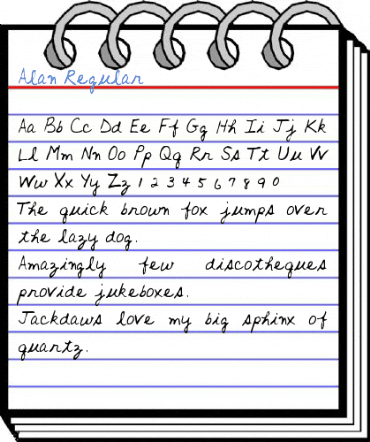 Alan Regular
Aa Bb Cc Dd Ee Ff Gg Hh Ii Jj Kk
Ll Mm Nn Oo Pp Qq Rr Ss Tt Uu Vv
Ww Xx Yy Zz 1 2 3 4 5 6 7 8 9 0
The quick brown fox jumps over
the lazy dog.
Amazingly few discotheques
provide jukeboxes.
Jackdaws love my big sphinx of
quartz.